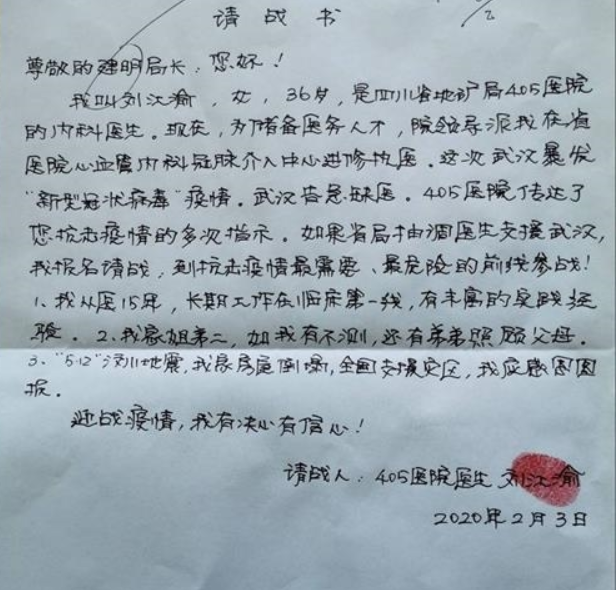 请战书
尊敬的建明局长：您好！
我叫刘江渝，女，36岁，是四川省地矿局405医院
的内科医生。现在，为储备医务人才，院领导派我在省
医院心血管内科冠脉介入中心进修执医。这次武汉暴发
“新型冠状病毒”疫情。武汉告急缺医。405医院传达了
您抗击疫情的多次指示。如果省局抽调医生支援武汉，
我报名请战，到抗击疫情最需要、最危险的前线参战！
1、我从医15年，长期工作在临床第一线，有丰富的实践经
验。2、我家姐弟二，如我有不测，还有弟弟照顾父母。
3、“5.12”汶川地震，我家房屋倒塌，全国支援灾区，我应感恩图
报。
迎战疫情，我有决心有信心！
请战人：405医院医生 刘江渝
2020年2月3日